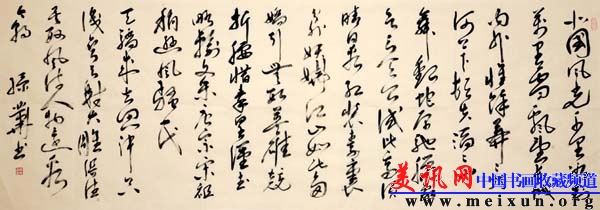 北国风光千里冰封
万里雪飘望长城
内外惟馀莽莽大
河上下顿失滔滔山
舞银蛇原驰蜡象
欲与天公试比高须
晴日看红装素裹
分外妖娆江山如此多
娇引无数英雄竞
折腰惜秦皇汉武
略输文采唐宗宋祖
稍逊风骚一代
天骄成吉思汗只
识弯弓射大雕俱往
矣数风流人物还看
今朝
书
美讯网 中国书画收藏频道
www.meixun.org